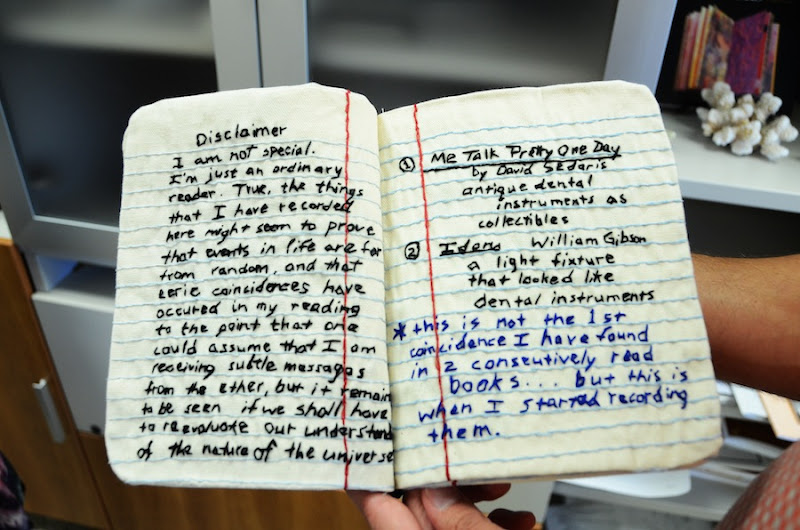 Disclaimer
I am not special.
I'm just an ordinary
reader. True, the things
that I have recorded
here might seem to prove
that events in life are far
from random, and that
eerie coincidences have
occured in my reading
to the point that one
could assume that I am
receiving subtle messages
from the ether, but it remain
to be seen if we shall have
to reevaluate our understand
of the nature of the universe
① Me Talk Pretty One Day
by David Sedaris
antique dental
instruments as
collectibles
② Idoru William Gibson
a light fixture
that looked like
dental instruments
* this is not the 1st
coincidence I have found
in 2 consecutively read
books... but this is
when I started recording
them.